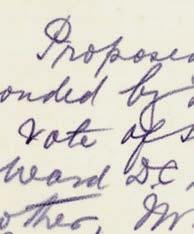 Proposed
onded by
Vote of
ward D.C.
other, W